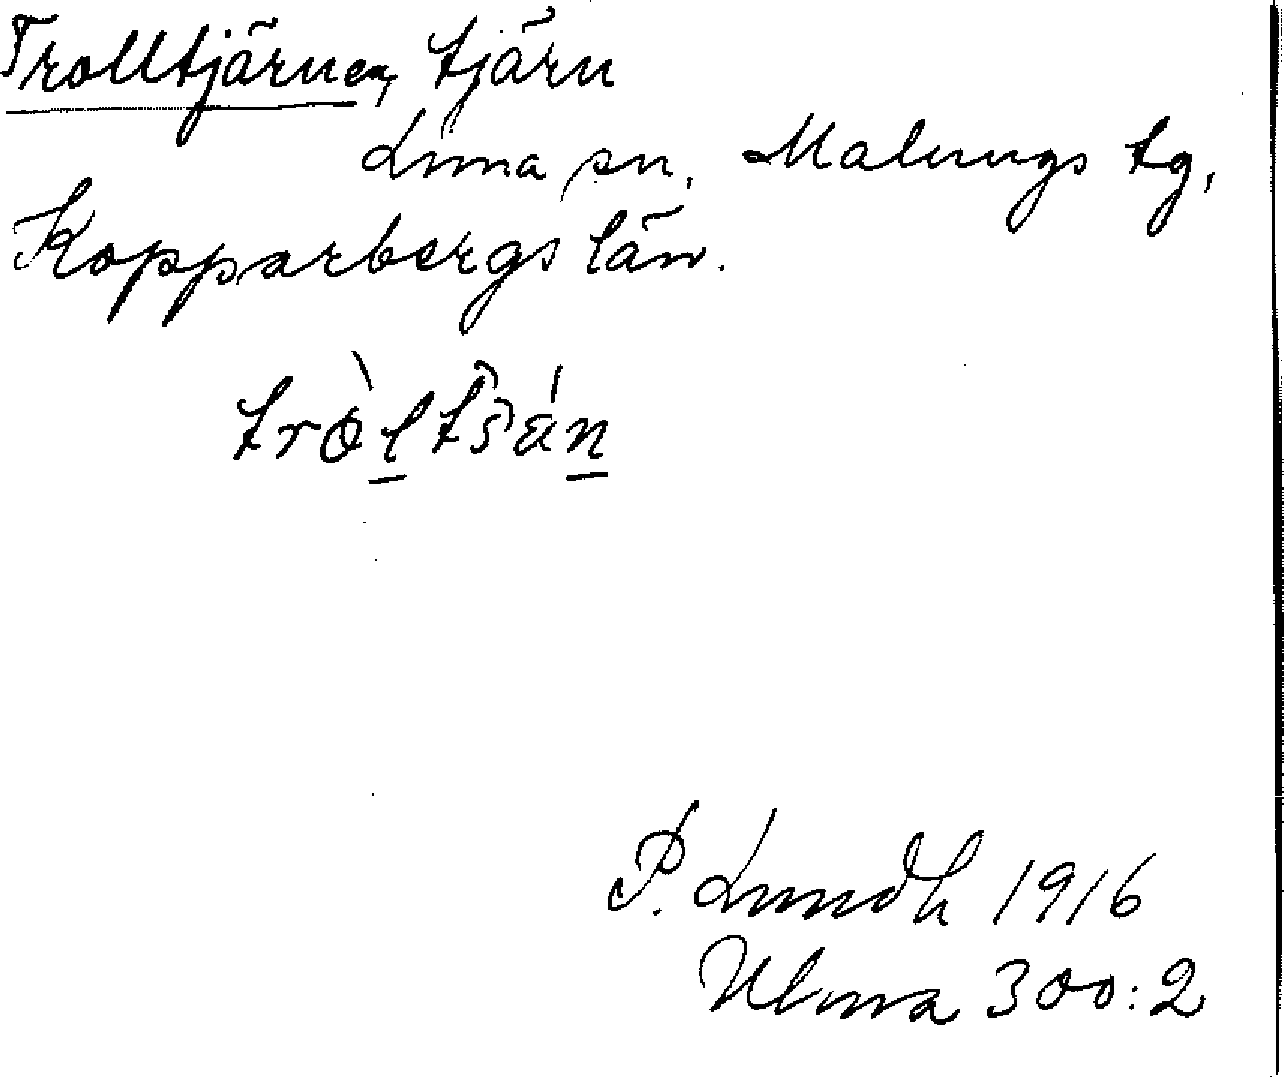 Trolltjärnen, tjärn
Lima sn, Malungs tg,
Kopparbergs län.
P. Lundh 1916
Ulma 300:2